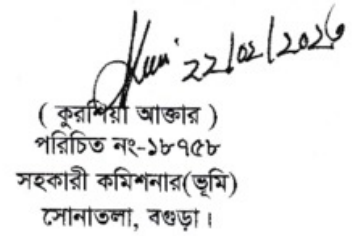 22/02/2026
( কুরশিয়া আক্তার )
পরিচিত নং-১৮৭৫৮
সহকারী কমিশনার(ভূমি)
সোনাতলা, বগুড়া।